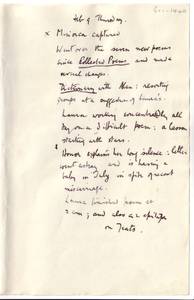 Feb 9 Thursday.
x Minorca captured
Went over the seven new poems
since Collected Poems and made
several changes.
Dictionary with Alan: recasting
groups at a suggestion of Laura's.
Laura working concentratedly all
day on a difficult poem; a
starting with stars.
Honor explains her long silence: letter
went astray and is having a
baby in July in spite of recent
miscarriage.
Laura finished poem at
2 am; and also an epitaph
on Yeats.